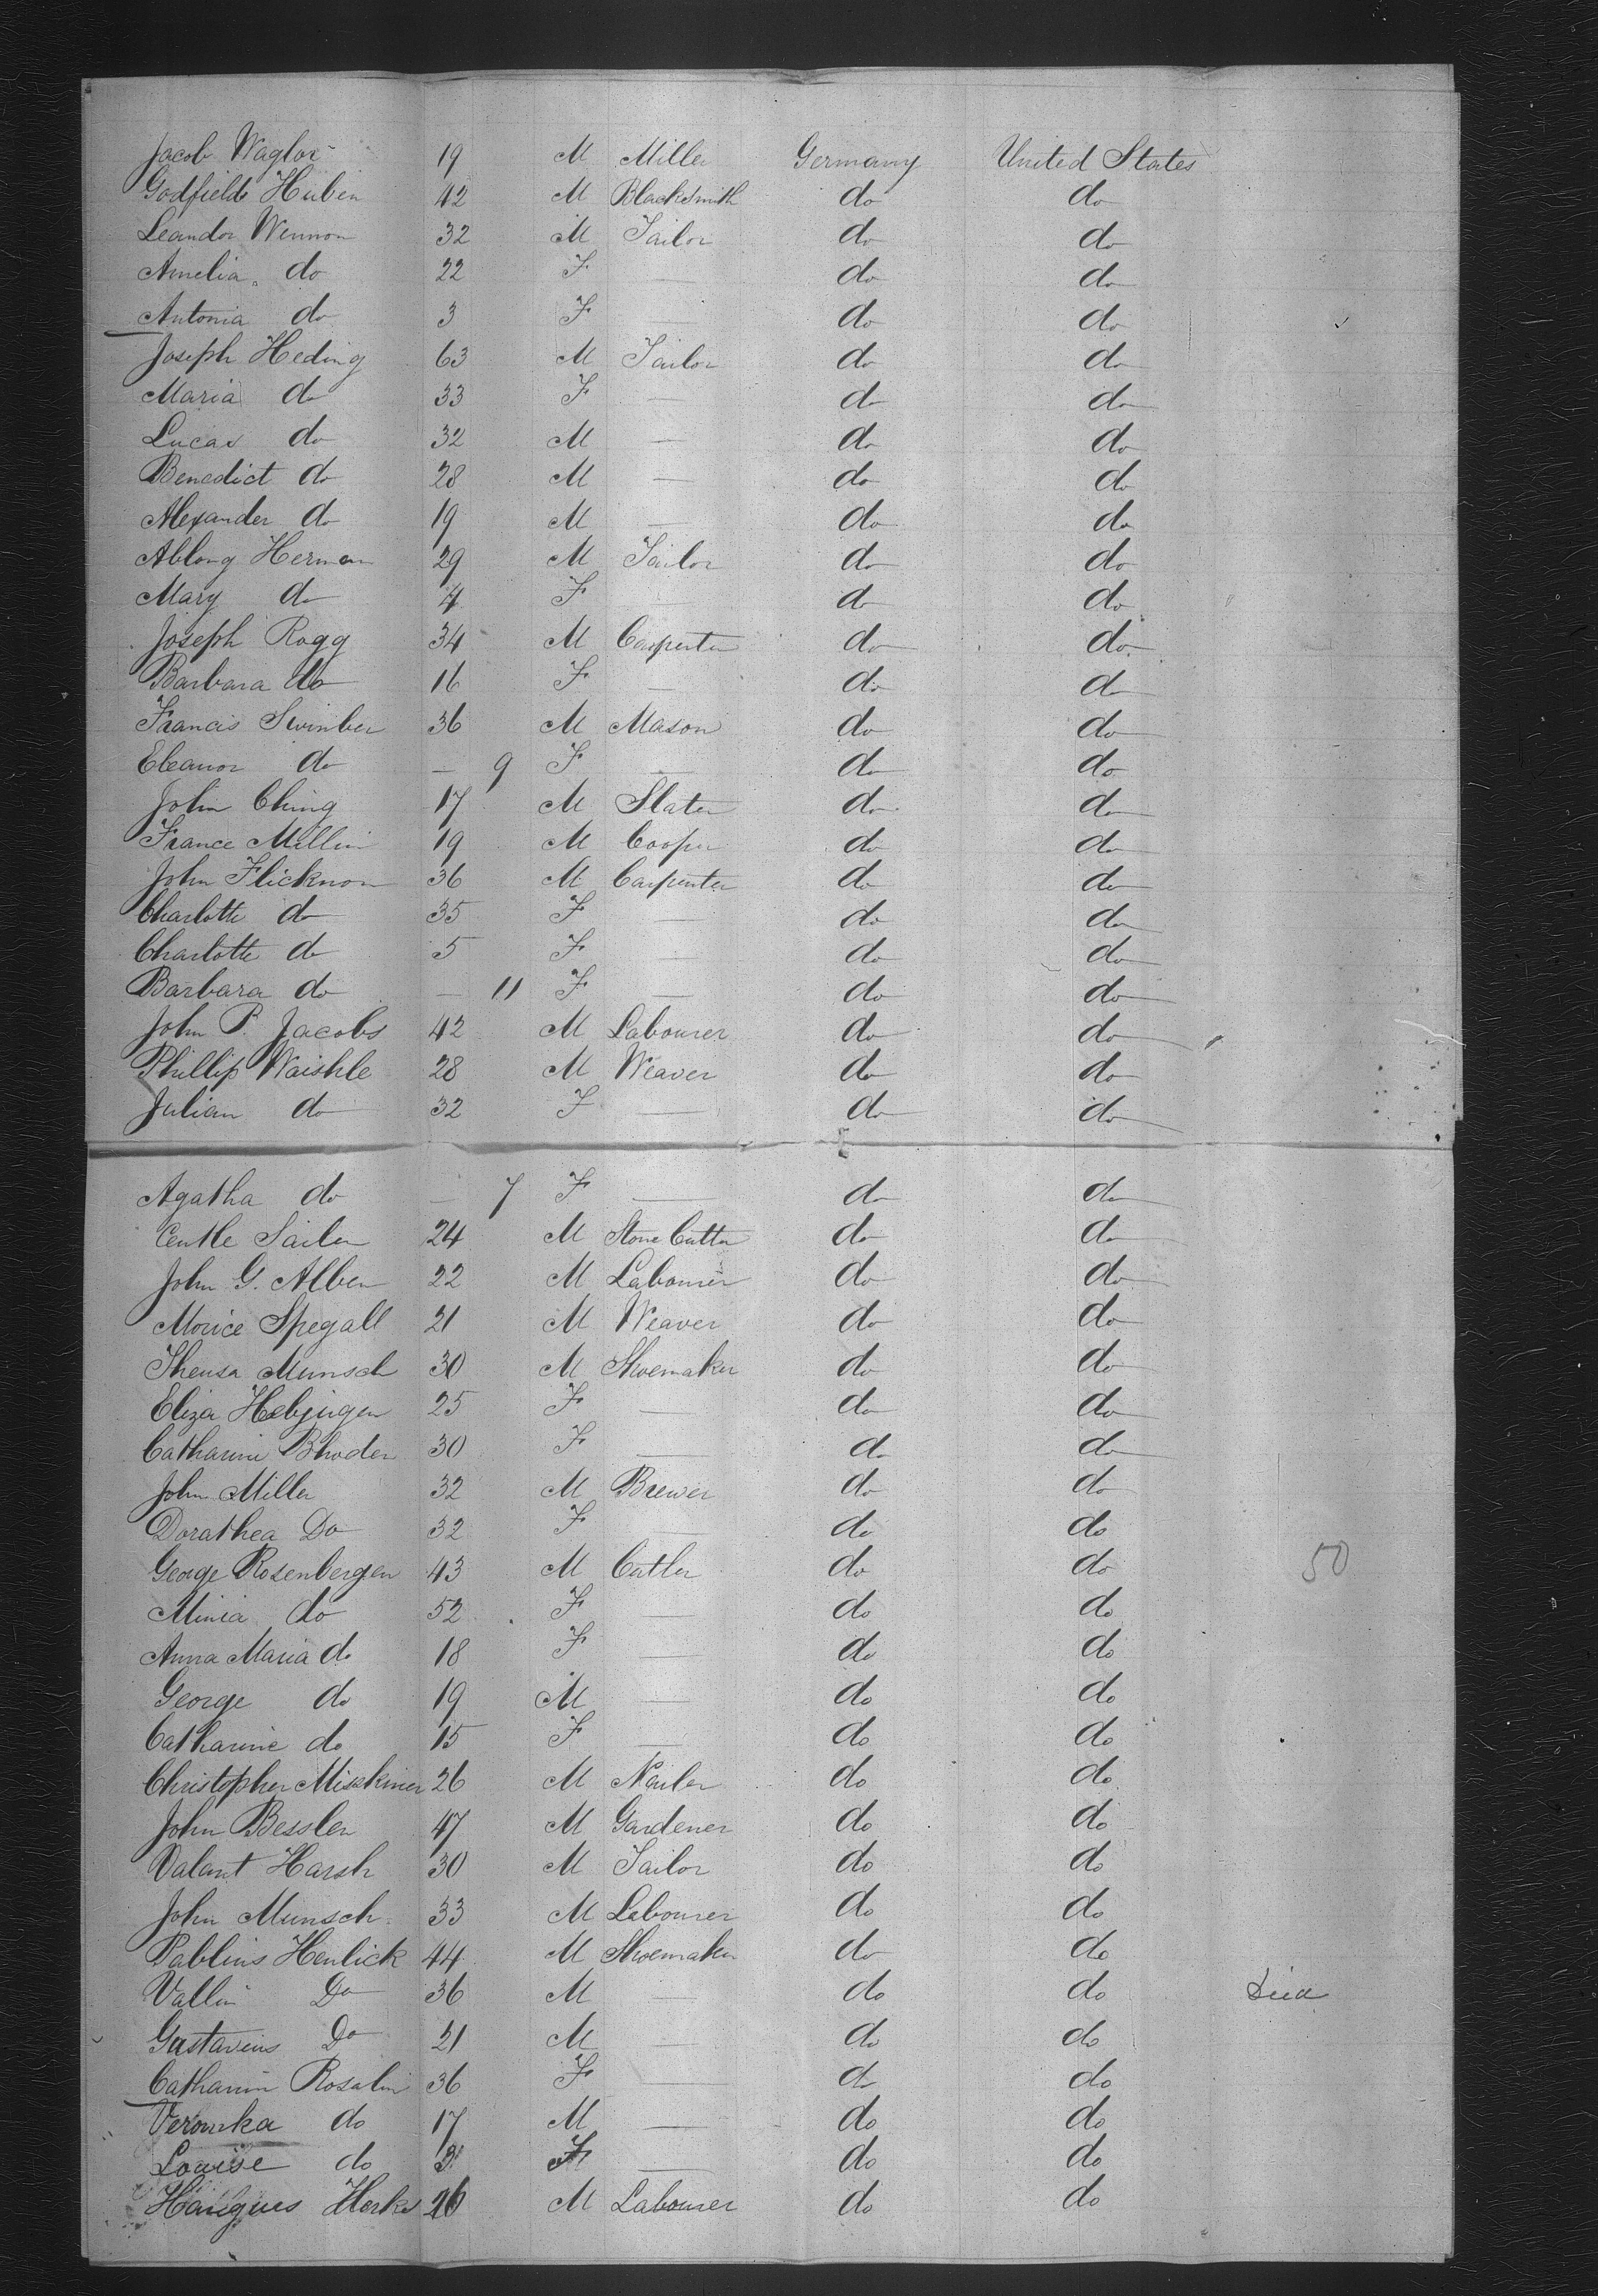 Jacob Waglor 19 M Miller Germany United States
Godfield Huben 42 M Blacksmith do do
Leandor Wennon 32 M Tailor do do
Amelia do 22 F — do do
Antonia do 3 F — do do
Joseph Heding 63 M Tailor do do
Maria do 33 F — do do
Lucas do 32 M — do do
Benedict do 28 M — do do
Alexander do 19 M — do do
Ablong Herman 29 M Tailor do do
Mary do 4 F — do do
Joseph Rogg 34 M Carpenter do do
Barbara do 16 F — do do
Francis Swinber 36 M Mason do do
Eleanor do — 9 F — do do
John Ching 17 M Slater do do
France Millin 19 M Cooper do do
John Flicknor 36 M Carpenter do do
Charlotte do 35 F — do do
Charlotte do 5 F — do do
Barbara do — 11 F — do do
John P. Jacobs 42 M Labourer do do
Phillip Waishle 28 M Weaver do do
Julian do 32 F — do do
Agatha do — 7 F — do do
Centle Sailer 24 M Stone Cutter do do
John G. Alber 22 M Labourer do do
Morice Spegall 21 M Weaver do do
Thensa Munsch 30 M Shoemaker do do
Eliza Hebjingen 25 F — do do
Catharine Bhoder 30 F — do do
John Miller 32 M Brewer do do
Dorathea Do 32 F — do do
George Rosenbergen 43 M Catler do do 50
Minia do 52 F — do do
Anna Maria do 18 F — do do
George do 19 M — do do
Catharine do 15 F — do do
Christopher Miskiner 26 M Nailer do do
John Bessler 47 M Gardener do do
Valant Harsh 30 M Tailor do do
John Munsch 33 M Labourer do do
Pablins Henlick 44 M Shoemaker do do
Vallin Do 36 M — do do Died
Gustavius Do 21 M — do do
Catharin Rosalin 36 F — do do
Veronika do 17 M — do do
Louise do 3 F — do do
Hangues Herks 26 M Labourer do do